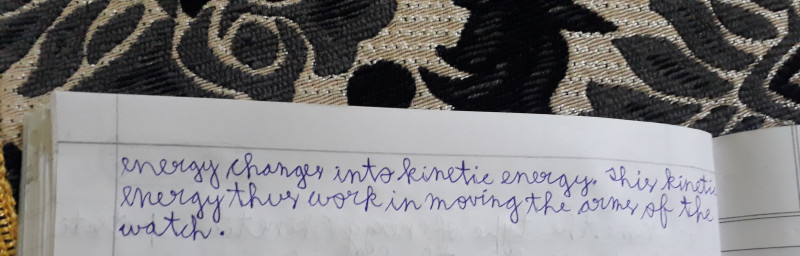 energy changes into kinetic energy. This kinetic
energy thus work in moving the arms of the
watch.